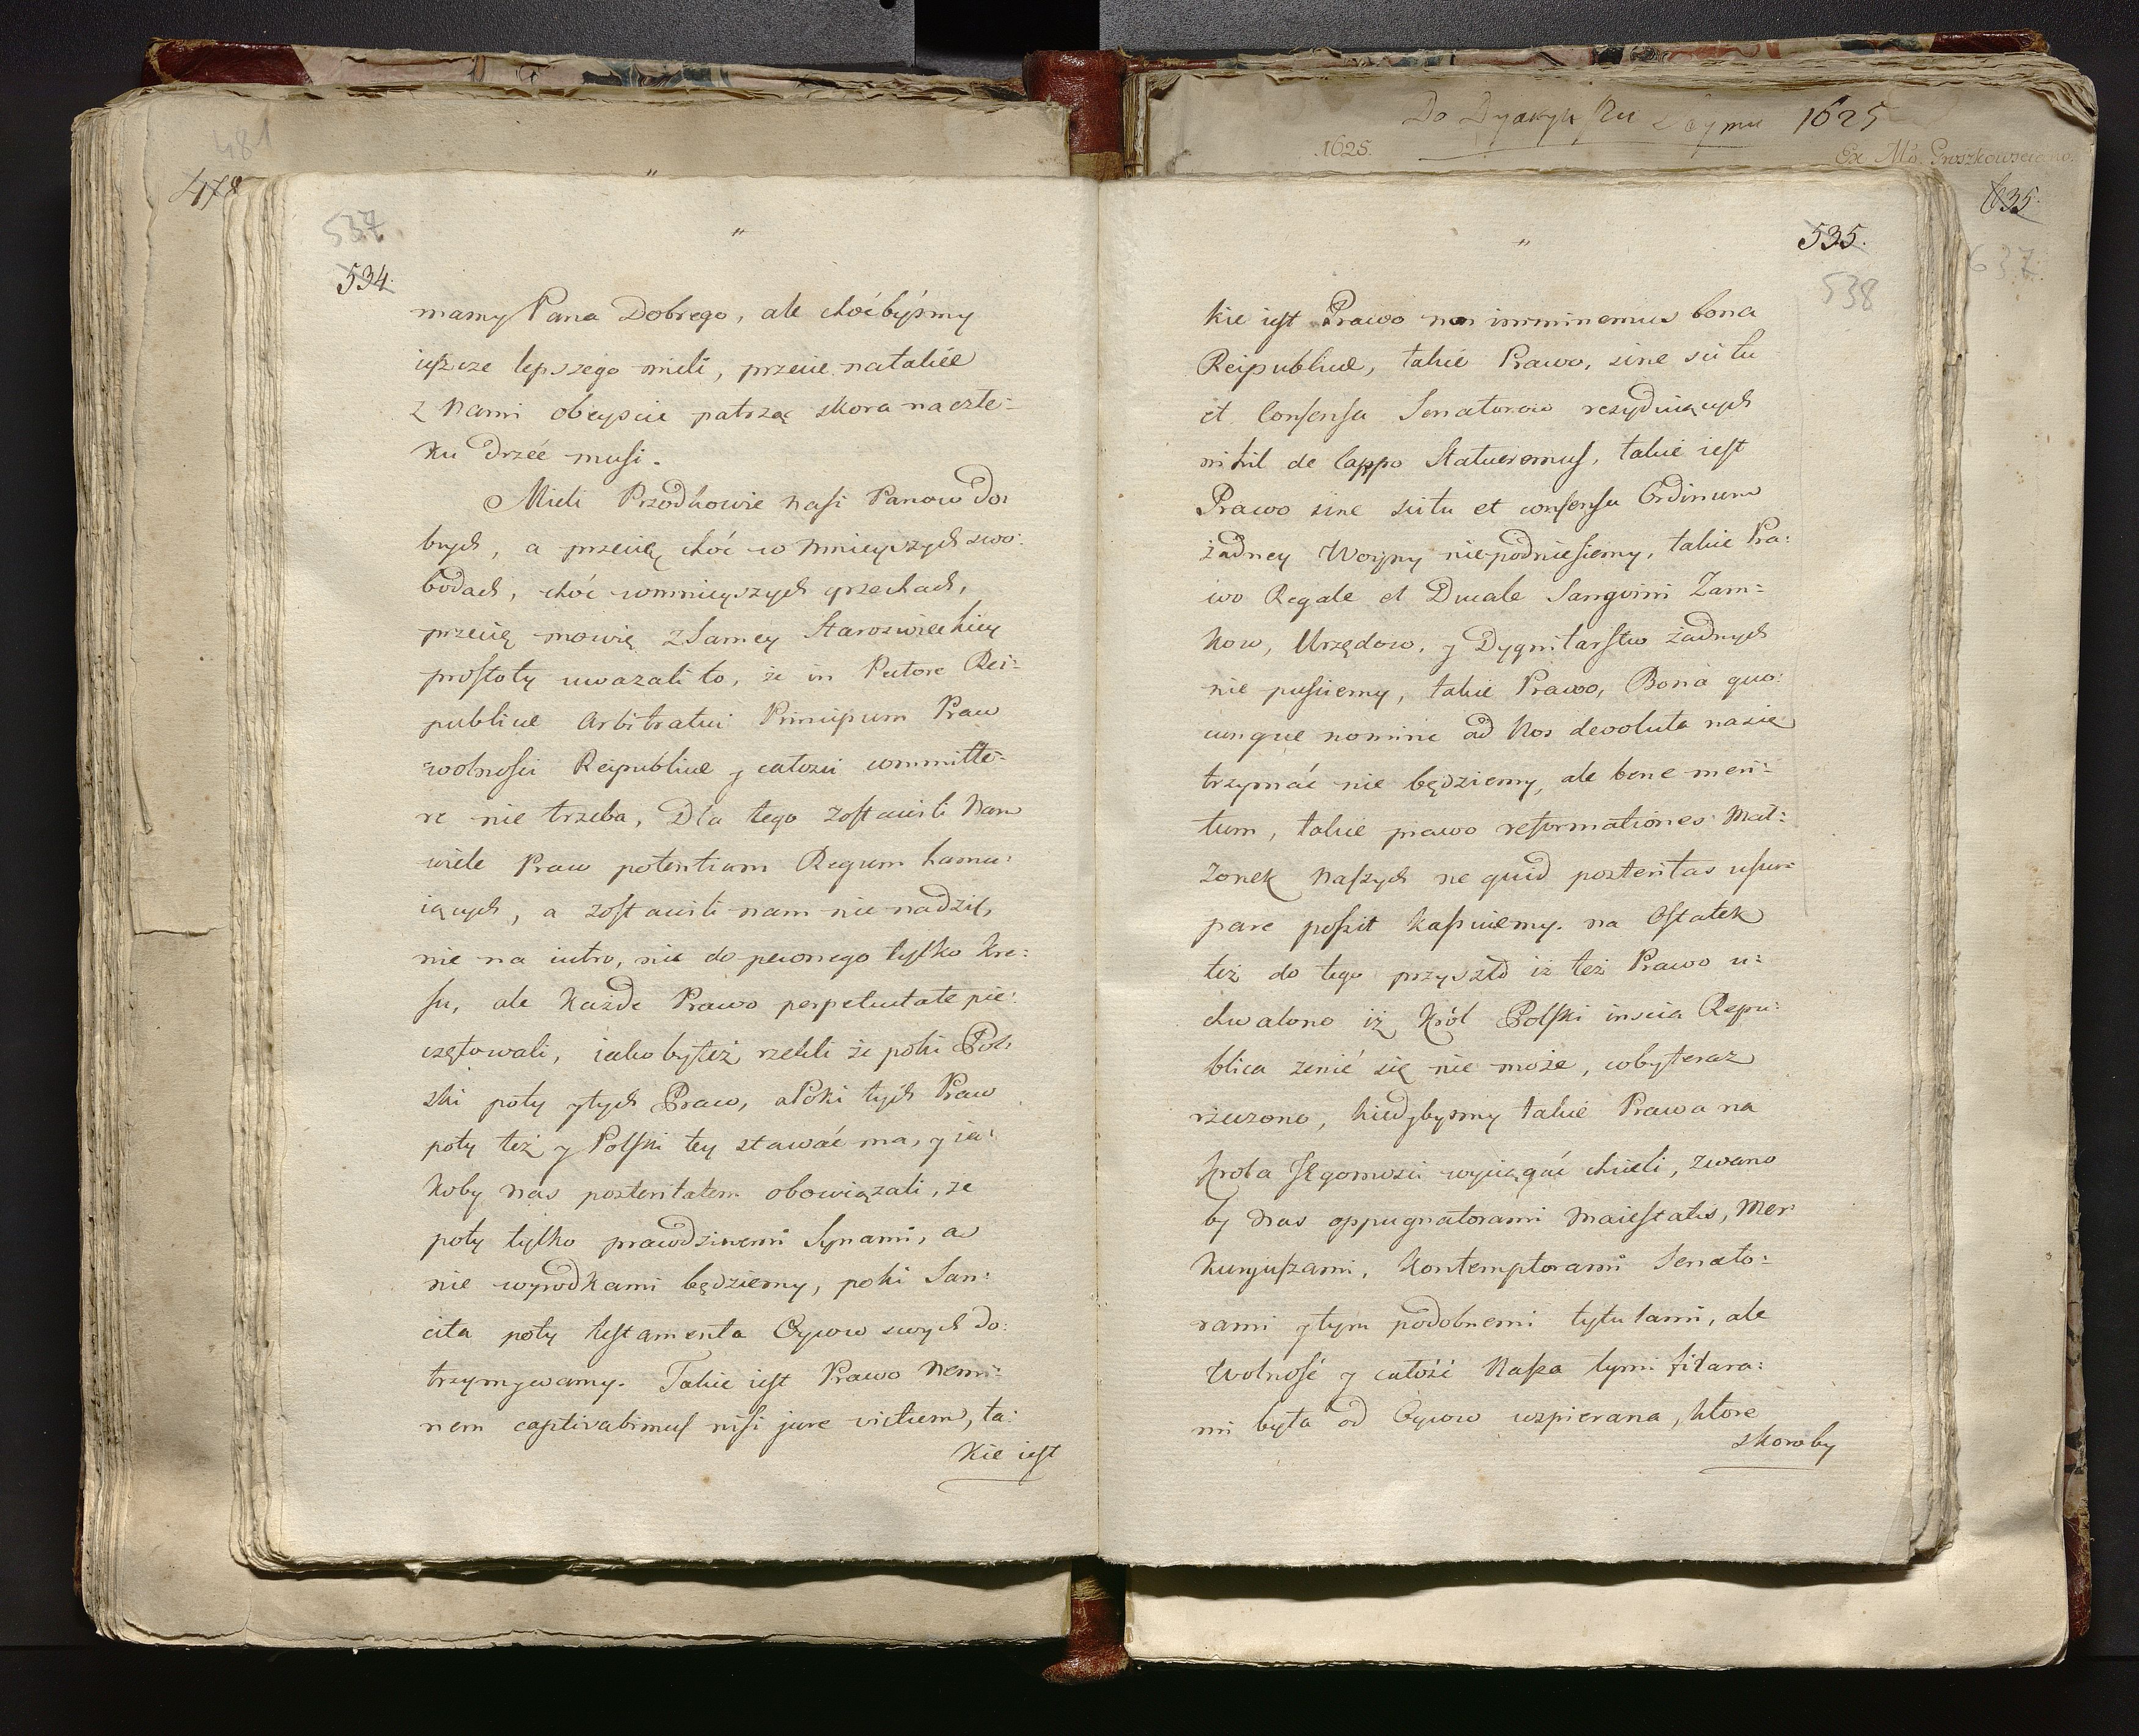 481
478
537.
534.
mamy Pana Dobrego, ale choćbyśmy
ieszcze lepszego mieli, przecie natakie
z Nami obeyście patrzą skora naczłe-
ku drzeć musi.
Mieli Przodkowie Nasi Panow Do:
brych, a przecię choć w mnieyszych swo:
bodach, choć wmnieyszych grzechach,
przecię mowię zSamey Staroswieckiey
prostoty uwazali to, że in Rei:
publicae Arbitratui Principum Praw
wolnosci Reipublicae y całosci committe-
re nie trzeba, Dla tego zostawili Nam
wiele Praw potentiam Regum hamu:
iących, a zostawili nam nie nadziś,
nie na iutro, nie do pewnego tylko kre:
su, ale każde Prawo perpetuitate pie:
częტowali, iakobyteż rzekli że poki Pol:
ski poty ytych Praw, aPoki tych Praw
poty też y Polski tey stawać ma, y ia:
koby nas posteritatem obowiązali, ze
poty tylko prawdziwemi Synami, a
nie wyrodkami będziemy, poki San:
cita poty testamenta Oycow swych do:
trzymywamy. Takie iest Prawo Nemi-
nem captivabimus nisi jure victum, ta:
kie iest
Do Dyakyk 1625
1625.
Ex Ms. Gruszkowsciano.
635.
637.
535.
538
kie iest Prawo non imminemus bona
Reipublicae, takie Prawo, sine scitu
et Consensu Senatorow rezyduiących
nihil de Statueremus, takie iest
Prawo sine scitu et consensu Ordinum
żadney Woyny niepodniesiemy, takie Pra:
wo Regale et Ducale Sangvini Zam:
kow, Urzędow, y Dygnitarstw żadnych
nie puściemy, takie Prawo, Bona quo:
cunque nomine ad Nos devoluta nasię
trzymać nie będziemy, ale bene meri-
tum, takie prawo reformationes Mał:
zonek Naszych ne quid posteritas usur:
pare possit kassuiemy. na Ostatek
też do tego przyszło iż też Prawo u:
chwalono iż Król Polski inscia Repu:
blica zenić się nie może, cobyteraz
rzeczono, kiedybysmy takie Prawa na
Krola JEgomości wyciągać chcieli, zwano
by Nas oppugnatorami Maiestatis, Mer:
kuryuszami, Kontemptorami Senato:
rami ytym podobnemi tytułami, ale
Wolność y całość Nasza tymi filara:
mi była od Oycow wspierana, które
skoroby